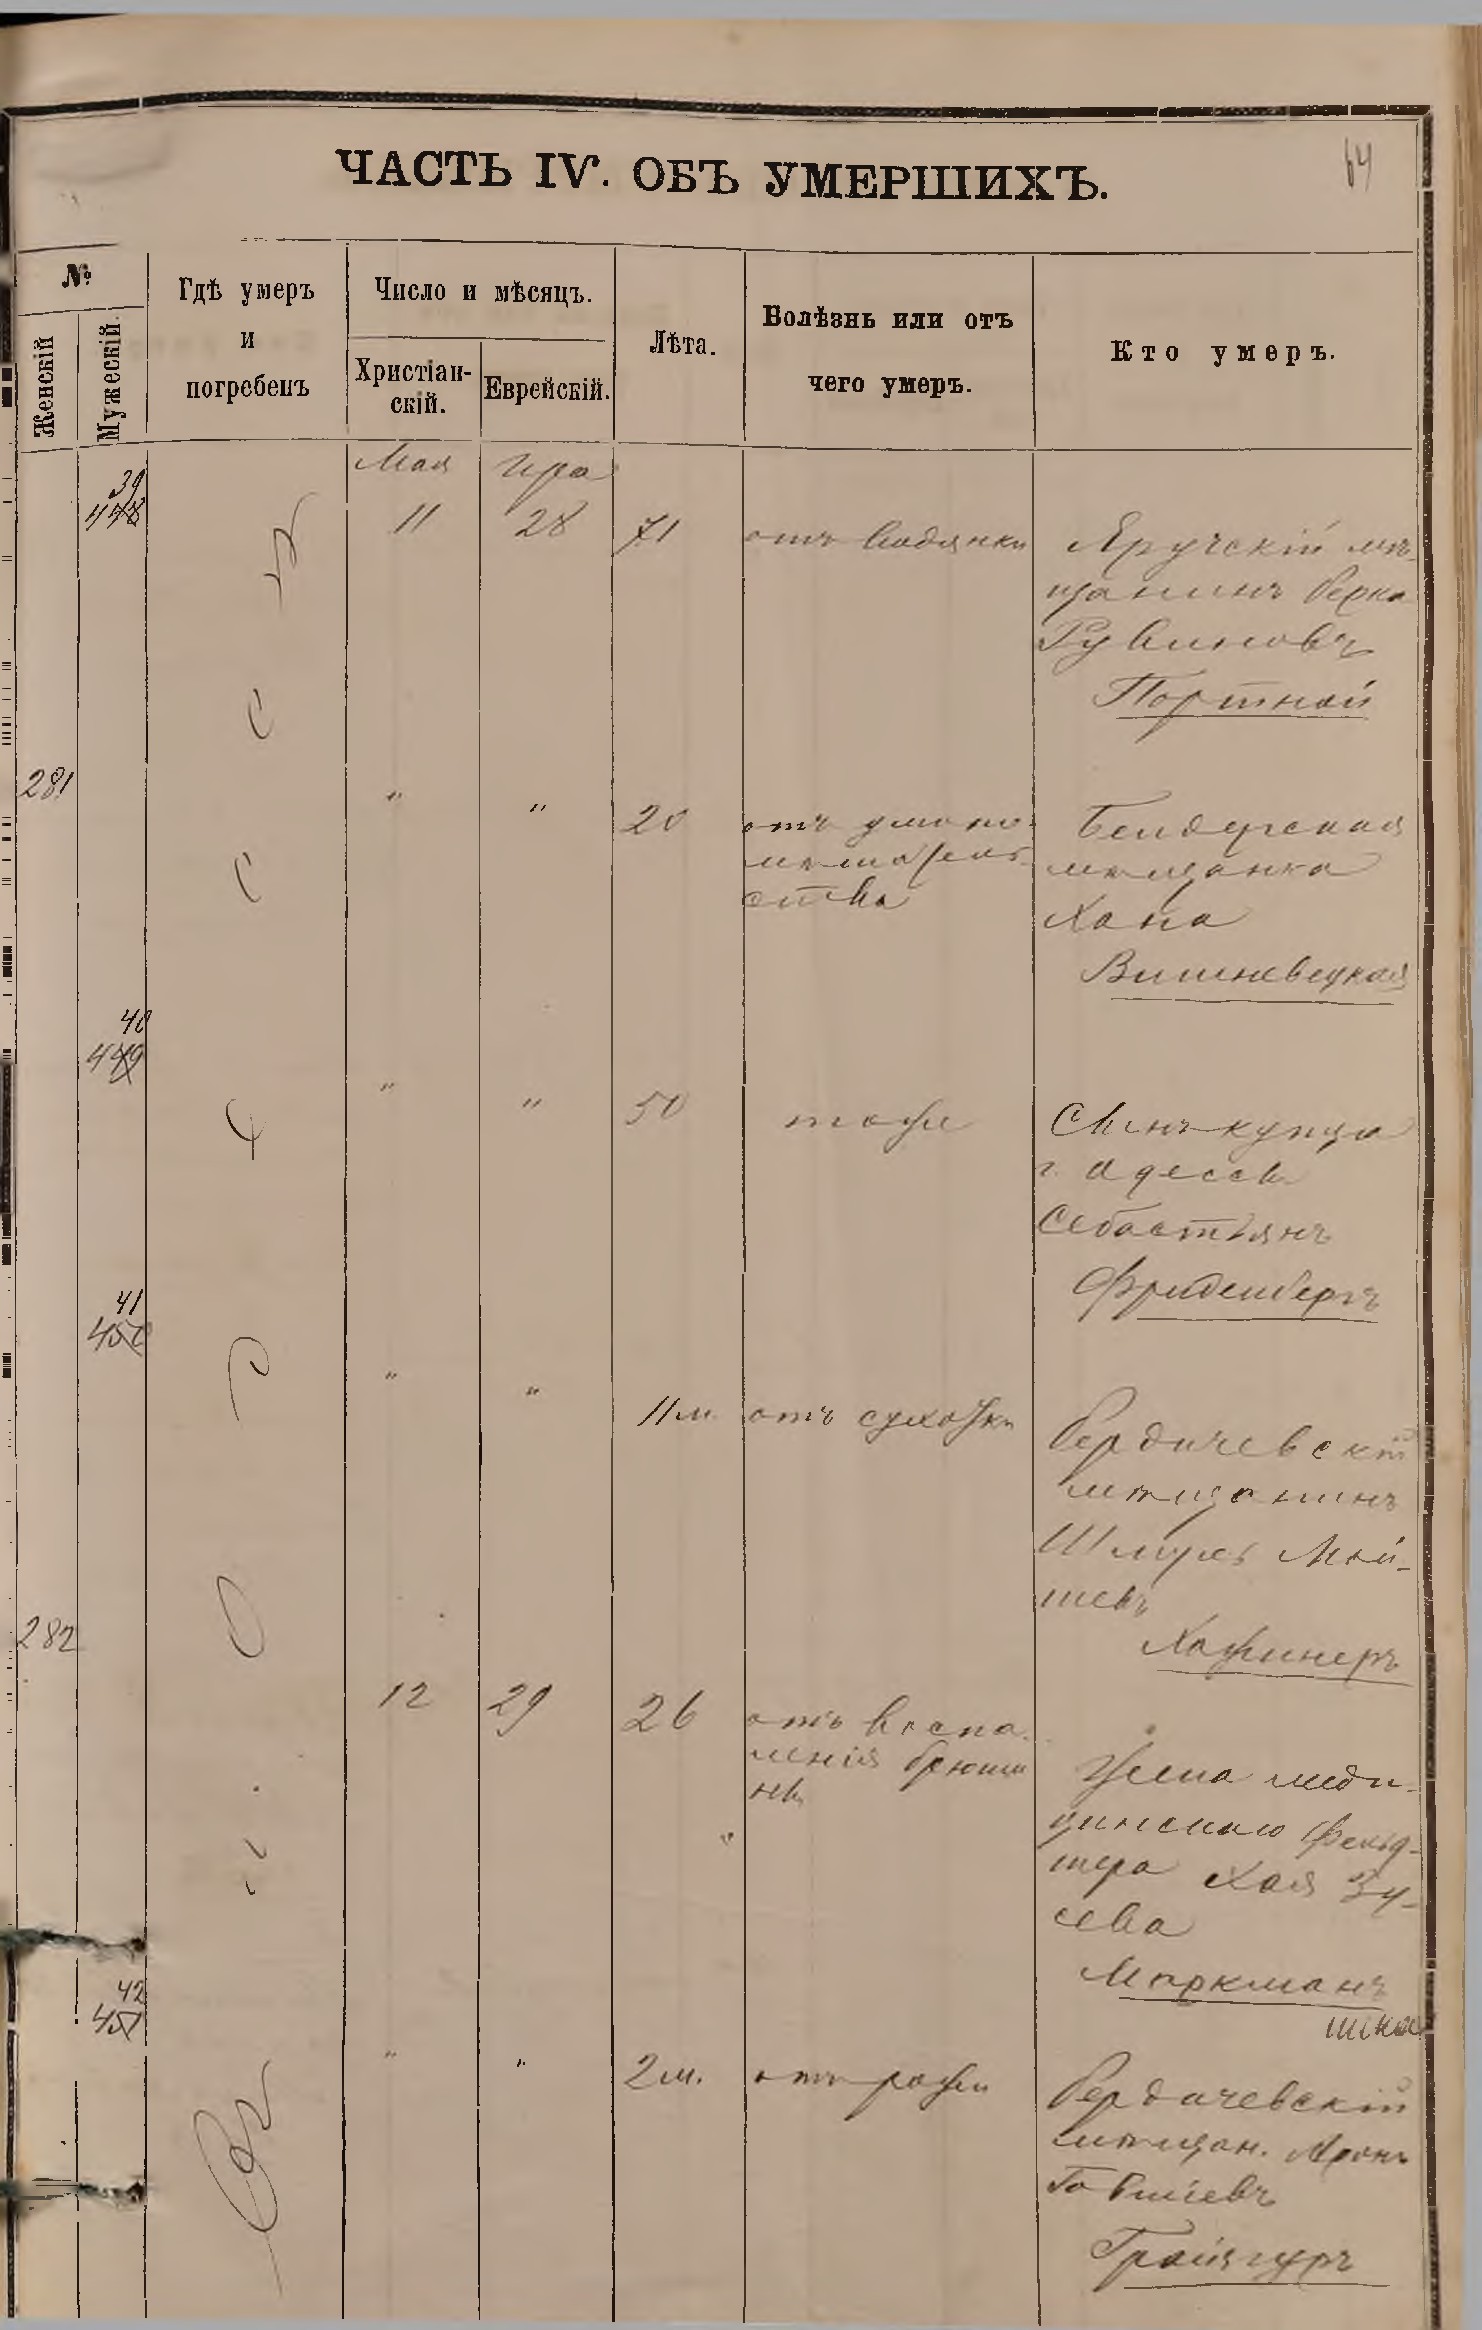 ЧАСТЬ IV. ОБЪ УМЕРШИХЪ.
64
№
Женскій
Мужескій.
Гдѣ умеръ
и
погребенъ
Число и мѣсяцъ.
Христіан-
скій.
Еврейскій.
Лѣта.
Болѣзнь или отъ
чего умеръ.
Кто умеръ.
Мая
Ира
39
448
11
28
71
отъ водянки
Яручскій мѣ-
щанинъ Берка
Рувиновъ
Портной
281
"
"
20
отъ умопо-
мѣшатель-
ства
Бендерская
мѣщанка
Хана
Вишневецкая
40
449
"
"
50
тоже
Сынъ купца
г. Одессы
Себастіянъ
Фриденбергъ
41
450
"
"
11 м.
отъ сухотки
Бердичевскій
мѣщанинъ
Шмуль Мой-
шевъ
282
12
29
26
отъ воспа-
ленія брюши
ны
Жена меди-
цинскаго фельд-
шера Хая Зу-
сева
Маркманъ
шная
42
451
"
"
2 м.
отъ рожи
Бердичевскій
мѣщан. Аронъ
Гойзгуръ
Одесса